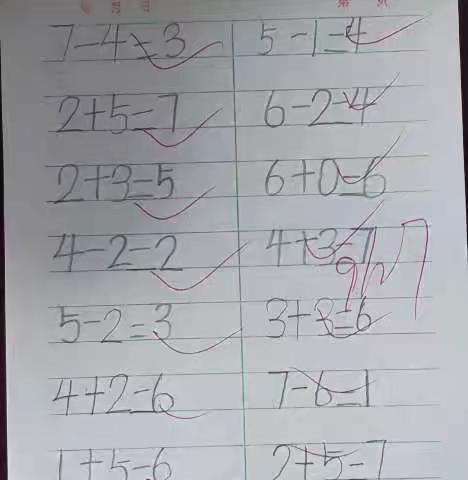 7-4=3 5-1=4
2+5=7 6-2=4
2+3=5 6+0=6
4-2=2 4+3=7
5-2=3 3+3=6
4+2=6 7-6=1
1+5=6 2+5=7